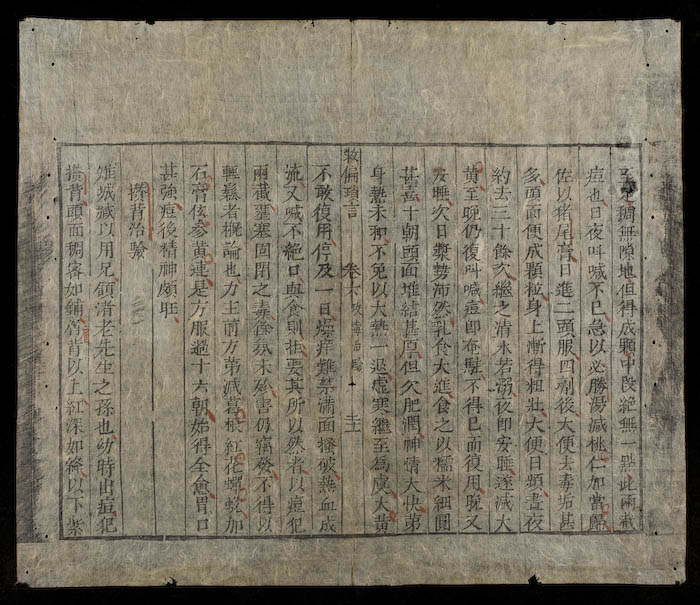 至足稠無隙地但得成顆中段絶無一點此兩截
痘也日夜叫喊不已急以必勝湯減桃仁加當歸
佐以猪尾膏日進二頭服四劑後大便去毒垢甚
多頭面便成顆粒身上漸得粗壯大便日頻晝夜
約去三十餘次繼之清水若溺夜即安睡遂減大
黄至晩仍復叫喊痘即奄
不得已而復用晩又
及睡次日漿勢沛然乳食大進食之以糯米細圓
甚喜十朝頭面堆結甚厚但欠肥潤神情大快第
身熱未和不免以大熱一退虚寒繼至爲慮大黄
救偏瑣言 卷六 治驗
不敢復用停及一日瘙痒難禁滿面搔破熱血成
流又喊不絶口與食則拒要其所以然者以痘犯
兩截壅塞固閉之毒餘氛未殄害仍竊發不得以
輕鬆者概論也力主前方第減葛根紅花蜣蛇加
石膏位參黄連是方服過十六朝始得全愈胃口
甚強痘後精神頗旺
搭背治驗
雉城臧以用兄顧渚老先生之孫也幼時出痘犯
搭背頭面稠密如鋪膏肓以上紅深如絳以下紫